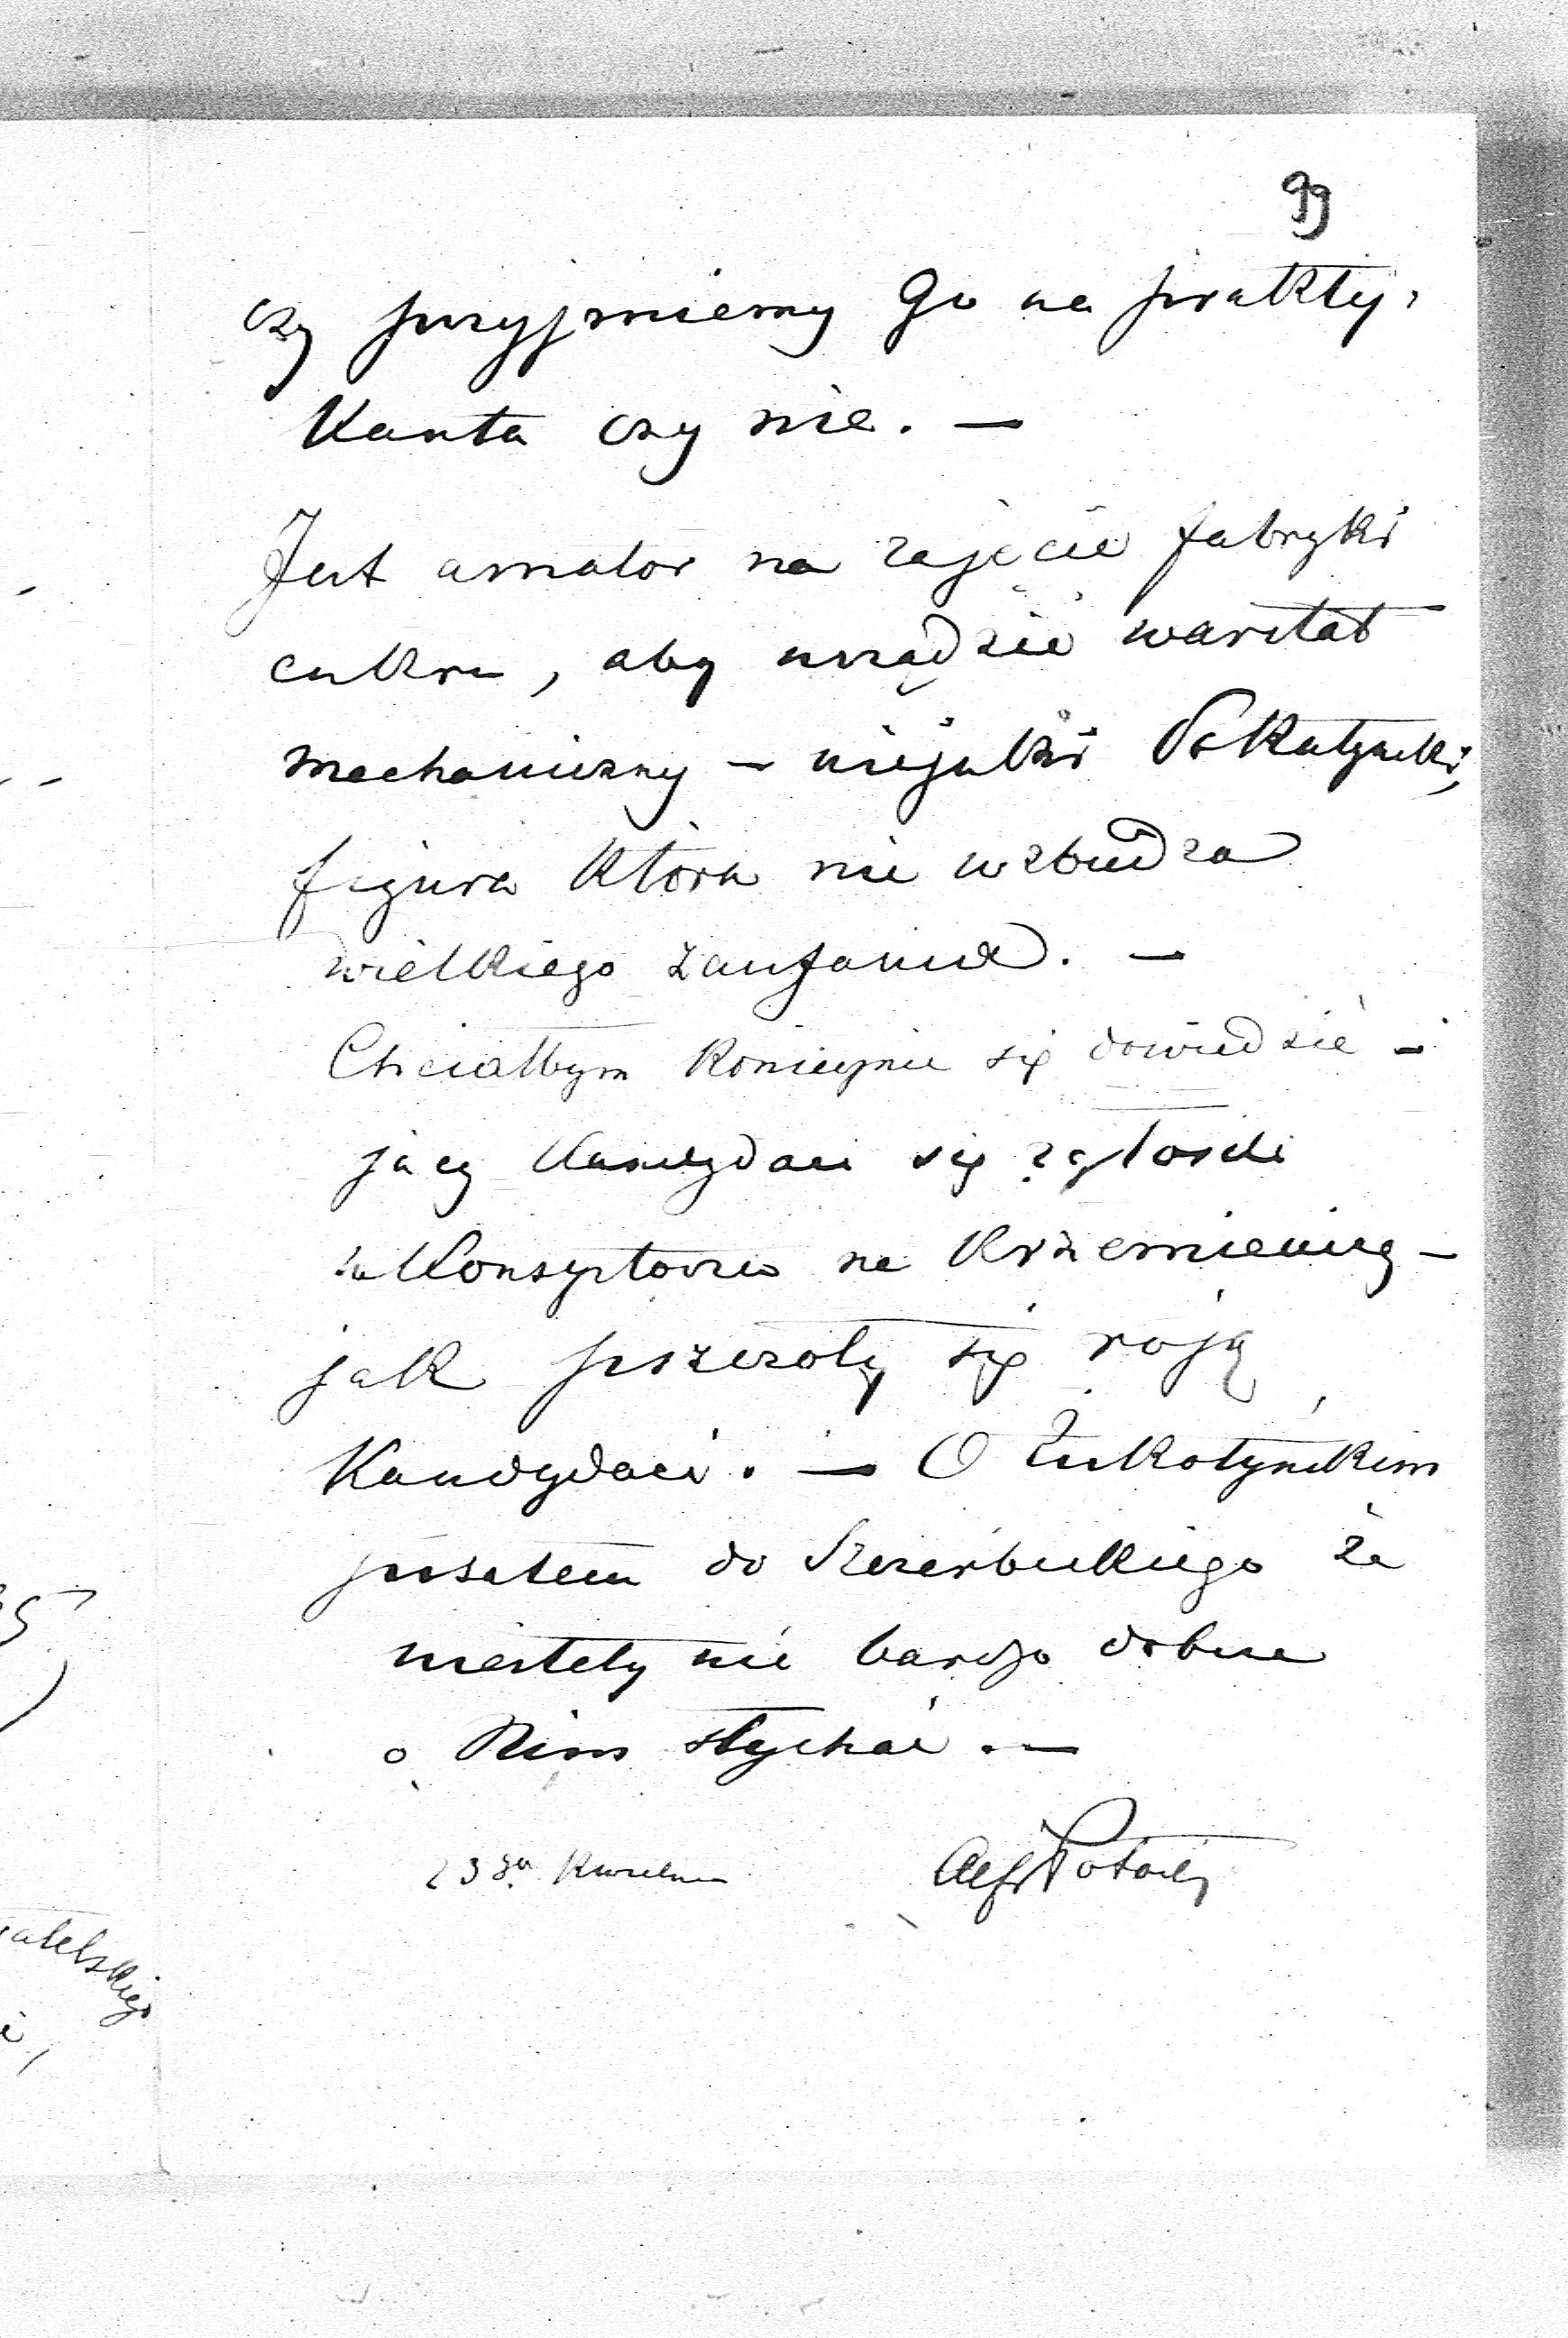 99
czy przyjmiemy Go na prakty-
kanta czy nie. —
Jest amator na zajęcie fabryki
cukru, aby urządzić warstat
mechaniczny — niejakiś
figura która nie wzbudza
wielkiego zaufania. —
Chciałbym koniecznie się dowiedzieć —
jacy kandydaci się zgłosili
w Konsystorzu na Krzemienicę —
jak pszczoły się roją
Kandydaci. — O Żukotyńskim
pisałem do Szczerbickiego że
niestety nie bardzo dobrze
o Nim słychać. —
23go Kwietnia Alf Potocki